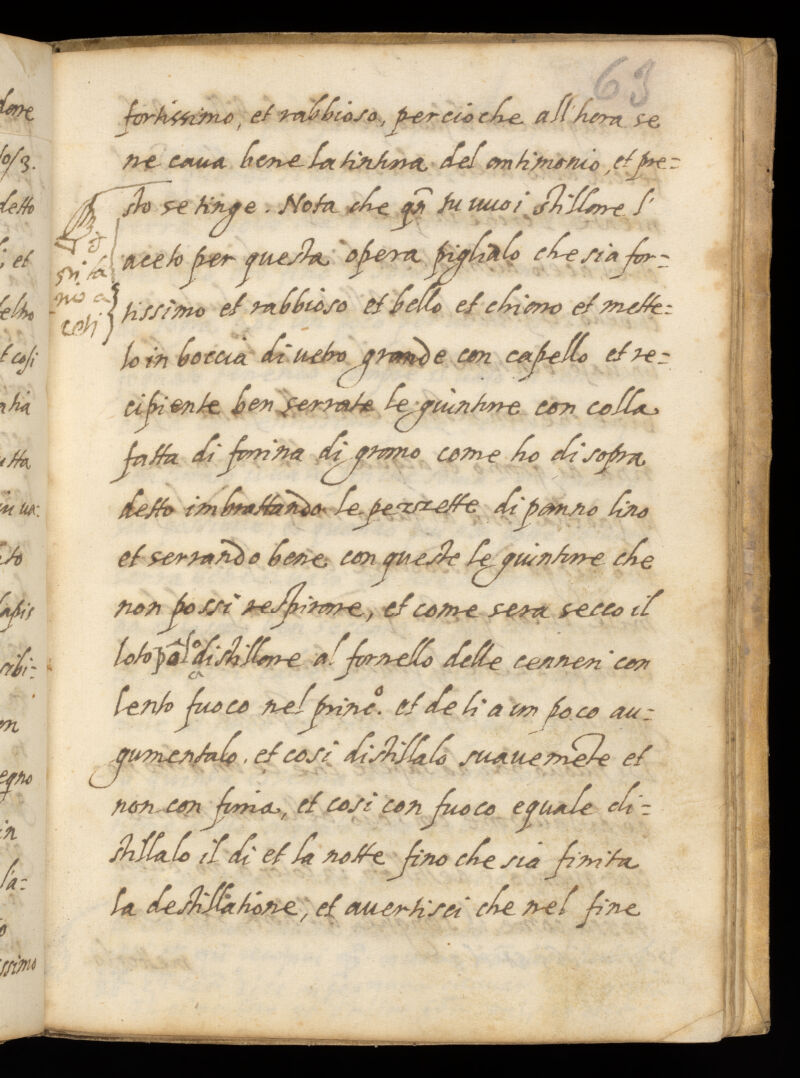 63
fortissimo, et rabbioso, percioche all'hora se
ne caua bene la tintura del antimonio, et pre=
sto se tinge. Nota che qn̄ tu uuoi stillare l'
aceto per questa opera piglialo che sia for=
tissimo et rabbioso et bello et chiaro et mette=
lo in boccia di uetro grande con capello et re=
cipiente ben serrate le giunture con colla
fatta di farina di grano come ho di sopra
detto imbrattando le pezzette di panno lino
et serrando bene con queste le giunture che
non possi respirare, et come sera secco il
loto distillare al fornello delle cenneri con
lento fuoco nel princ.º et de li a un poco au=
gumentalo. et cosi distillalo suauemẽte et
non con furia, et cosi con fuoco equale di=
stillalo il di et la notte fino che sia finita
la destillatione, et auertisci che nel fine
dore
detto
et
t cosi
lapis
sibi=
egno
in
la=
ssimo